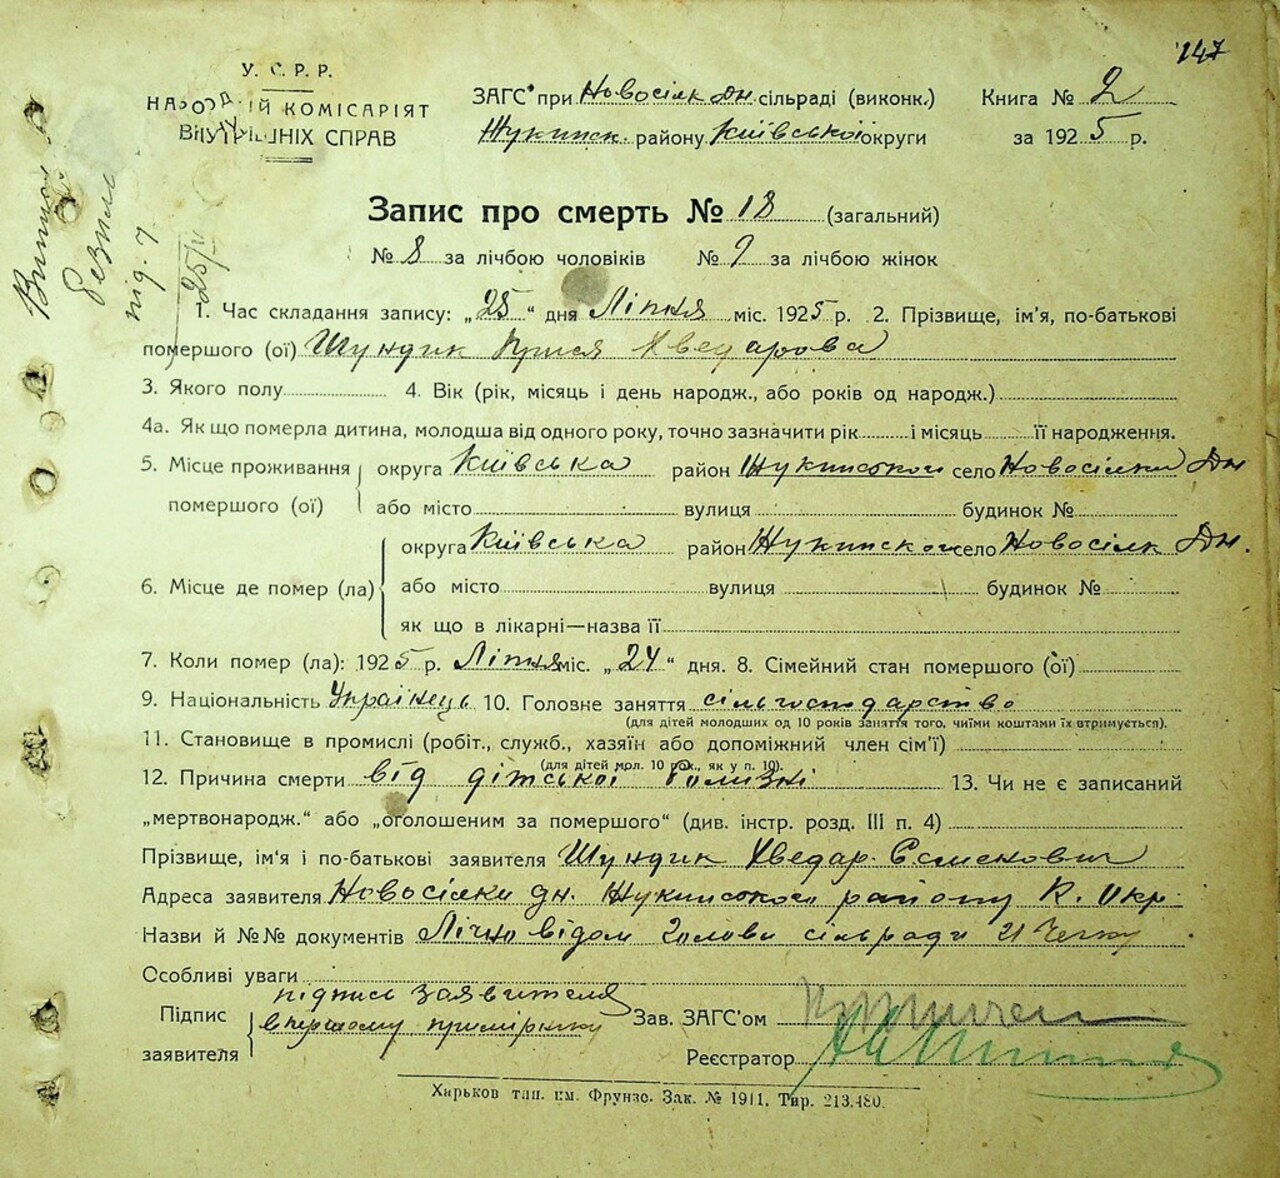 147
У. С. Р. Р.
НАРОДНІЙ КОМІСАРІЯТ
ВНУТРІШНІХ СПРАВ
ЗАГС при Новосілк Дн. сільраді (виконк.) Книга № 2
Жукинск. району Київської округи за 1925 р.
25/II
Запис про смерть № 18 (загальний)
№ 8 за лічбою чоловіків № 9 за лічбою жінок
1. Час складання запису: „25“ дня Ліпня міс. 1925 р. 2. Прізвище, ім'я, по-батькові
помершого (ої) Шундик Прися Хведарова
3. Якого полу 4. Вік (рік, місяць і день народж., або років од народж.)
4а. Як що померла дитина, молодша від одного року, точно зазначити рік і місяць її народження.
5. Місце проживання помершого (ої) округа Київська район Жукинского село Новосілки Дн
або місто вулиця будинок №
6. Місце де помер (ла) округа Київська район Жукинского село Новосілк Дн.
або місто вулиця будинок №
як що в лікарні—назва її
7. Коли помер (ла): 1925 р. Ліпня міс. „24“ дня. 8. Сімейний стан помершого (ої)
9. Національність Українець 10. Головне заняття сільгосподарство
(для дітей молодших од 10 років заняття того, чиїми коштами їх втримується).
11. Становище в промислі (робіт., служб., хазяїн або допоміжний член сім'ї)
(для дітей мол. 10 рок., як у п. 10).
12. Причина смерти від дітської болизні 13. Чи не є записаний
„мертвонародж.“ або „оголошеним за помершого“ (див. інстр. розд. III п. 4)
Прізвище, ім'я і по-батькові заявителя Шундик Хведар
Адреса заявителя Новосілки дн. Жукинского району К. Окр.
Назви й №№ документів Лічно відом голови сільради
Особливі уваги
Підпис заявителя підпис заявителя
в першому примірнику Зав. ЗАГС'ом
Реєстратор
Харьков тип. им. Фрунзе. Зак. № 1911. Тир. 213.480.